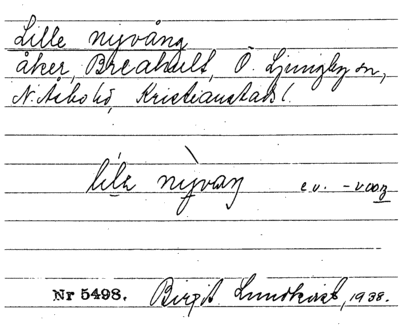 Lille nyvång
åker, Breahult, Ö. Ljungby sn,
N. Åsbo hd, Kristianstads l.
lilə nyvaŋ e.v. -vɑɷŋ
Nr 5498. Birgit Lundkvist, 1938.